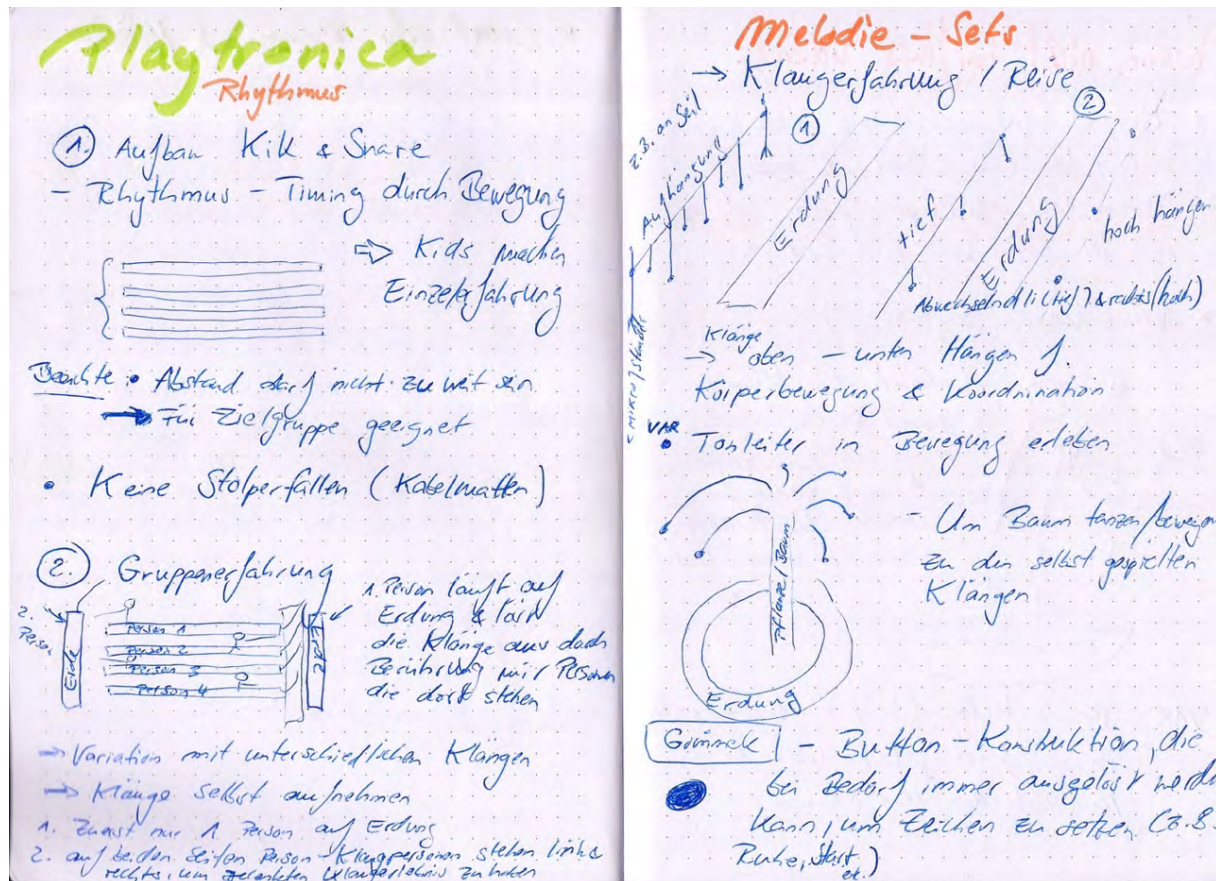 Playtronica
Rhythmus
1. Aufbau Kik & Snare
- Rhythmus - Timing durch Bewegung
⇨ Kids machen
Einzelerfahrung
Beachte: • Abstand darf nicht zu weit sein
→ Für Zielgruppe geeignet
• Keine Stolperfallen (Kabelmatten)
2. Gruppenerfahrung
2. Person
Erde
Person 1
Person 2
Person 3
Person 4
Erde
1. Person läuft auf
Erdung & löst
die Klänge aus durch
Berührung mit Personen
die dort stehen
→ Variation mit unterschiedlichen Klängen
→ Klänge selbst aufnehmen
1. Zuerst nur 1 Person auf Erdung
2. auf beiden Seiten Person - Klangpersonen stehen links
rechts, um Klangerlebnis zu haben
Melodie - Sets
→ Klangerfahrung / Reise
z.B. an Seil
Aufhängung
1
Erdung
tief
2
Erdung
hoch hängen
Abwechselnd li (tief) & rechts (hoch)
Klänge
→ oben - unten Hängen f.
Körperbewegung & Koordnination
VAR
• Tonleiter in Bewegung erleben
Pflanze/Baum
Erdung
- Um Baum tanzen/bewegen
zu den selbst gespielten
Klängen
Gimmek - Button-Konstruktion, die
bei Bedarf immer ausgelöst werd
kann, um Zeichen zu setzen (z.B.
Ruhe, Start, etc.)